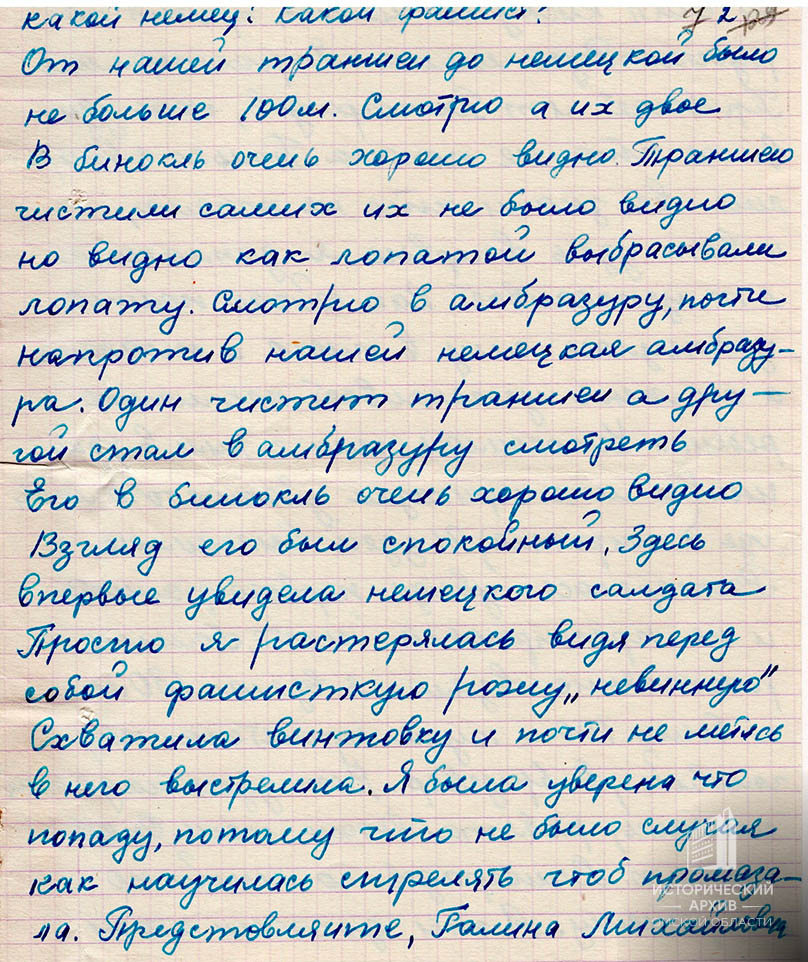 какой немец! Какой фашист!
72
От нашей траншеи до немецкой было
не больше 100м. Смотрю а их двое
В бинокль очень хорошо видно. Траншею
чистили самих их не было видно
но видно как лопатой выбрасывали
лопату. Смотрю в амбразуру, почти
напротив нашей немецкая амбразу-
ра. Один чистит траншеи а дру-
гой стал в амбразуру смотреть
Его в бинокль очень хорошо видно
Взгляд его был спокойный. Здесь
впервые увидела немецкого салдата
Просто я растерялась видя перед
собой фашисткую рожу „невинную"
Схватила винтовку и почти не метясь
в него выстрелила. Я была уверена что
попаду, потому что не было случая
как научилась стрелять чтоб промаза-
ла. Предстовляите, Галина Михайловна
ИСТОРИЧЕСКИЙ
АРХИВ
ОМСКОЙ ОБЛАСТИ